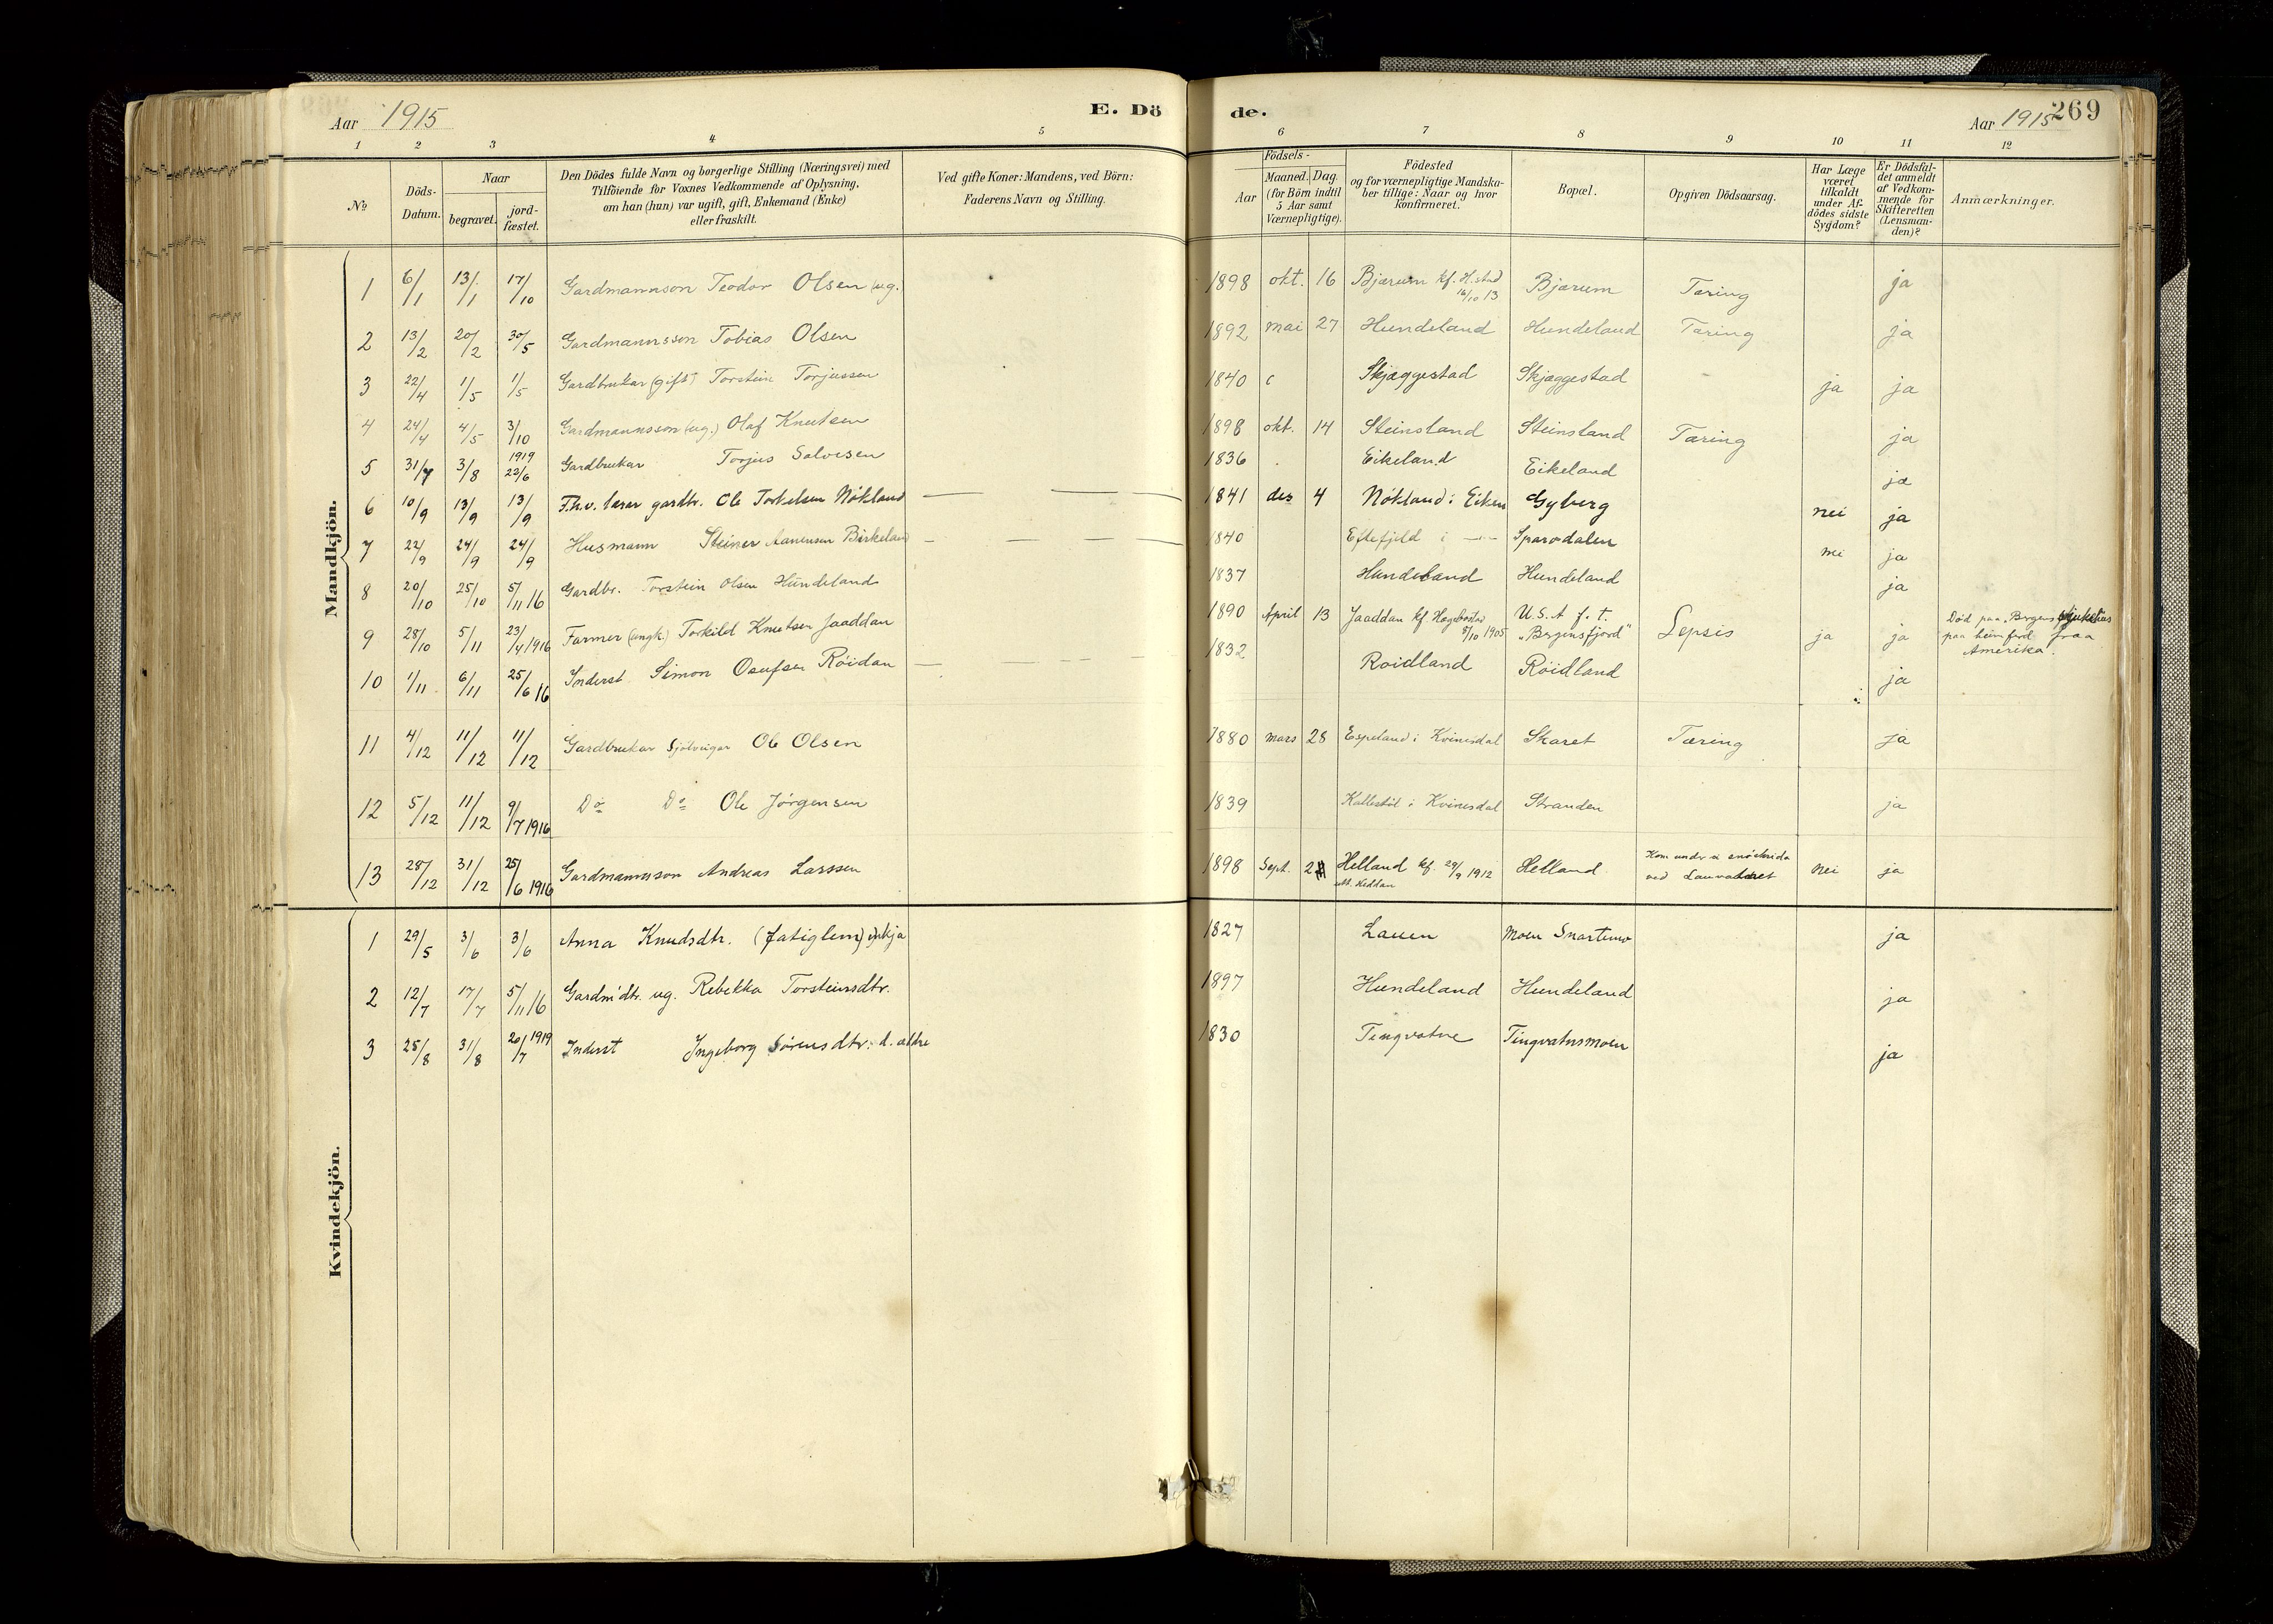 Aar 1915 E. Dö de. Aar 1915 269
1 2 3 4 5 6 7 8 9 10 11 12
№ Döds-Datum. Naar begravet. jord-fæstet. Den Dödes fulde Navn og borgerlige Stilling (Næringsvei) med Tilföiende for Voxnes Vedkommende af Oplysning, om han (hun) var ugift, gift, Enkemand (Enke) eller fraskilt. Ved gifte Koner: Mandens, ved Börn: Faderens Navn og Stilling. Födsels- Aar Maaned. Dag. (for Börn indtil 5 Aar samt Værnepligtige). Födested og for værnepligtige Mandska-ber tillige: Naar og hvor konfirmeret. Bopæl. Opgiven Dödsaarsag. Har Læge været tilkaldt under Af-dödes sidste Sygdom? Er Dödsfal-det anmeldt af Vedkom-mende for Skifteretten (Lensman-den)? Anmærkninger.
Mandkjön.
1 6/1 13/1 17/10 Gardmannson Teodor Olsen ug. 1898 okt. 16 Bjærum kf. H.stad 16/10 13 Bjærum Tæring ja
2 13/2 20/2 30/5 Gardmannsson Tobias Olsen 1892 mai 27 Hundeland Hundeland Tæring ja
3 22/4 1/5 1/5 Gardbrukar (gift) Torstein Torjussen 1840 Skjæggestad Skjæggestad ja ja
4 24/4 4/5 3/10 Gardmannsson (ug.) Olaf Knutsen 1898 okt. 14 Steinsland Steinsland Tæring ja
5 31/7 3/8 1919 22/6 Gardbrukar Torjus Salvesen 1836 Eikeland Eikeland ja
6 10/9 13/9 13/9 F.h.v. lærar gardbr. Ole Torkelsen Nökland — — 1841 des 4 Nökland i Eiken Gyberg nei ja
7 22/9 24/9 24/9 Husmann Steiner Aanensen Birkeland — — — 1840 Eftefjeld i —"— Sparvdalen nei ja
8 20/10 25/10 5/11 16 Gardbr. Torstein Olsen Hundeland 1837 Hundeland Hundeland ja
9 28/10 5/11 23/4 1916 Farmer (ungk.) Torkild Knutsen Jaaddan 1890 April 13 Jaaddan kf Hægebostad 8/10 1905 U.S.A f. t. „Bergensfjord" Sepsis ja ja Död paa „Bergens sjukehus paa heimferd fraa Amerika.
10 1/11 6/11 25/6 16 Inderst Simon Osufsen Röidan — — — 1832 Roidland Röidland ja
11 4/12 11/12 11/12 Gardbrukar Sjölveigar Ole Olsen 1880 mars 28 Espeland i Kvinesdal Skaret Tæring ja
12 5/12 11/12 9/7 1916 Do Do Ole Jörgensen 1839 i Kvinesdal Stranden ja
13 28/12 31/12 25/6 1916 Gardmannsson Andreas Larssen 1898 Sept. 2 Helland kf. 29/9 1912 Helland Kom undr ei snöskrida ved nei ja
Kvindekjön.
1 29/5 3/6 3/6 Anna Knudsdtr. (fatiglem) enkja 1827 Lauen Moen Snartemo ja
2 12/7 17/7 5/11 16 Gardm'dtr. ug. Rebekka Torsteinsdtr. 1897 Hundeland Hundeland ja
3 25/8 31/8 20/7 1919 Inderst Ingeborg Sörensdtr. d. ældre 1830 Tingvatne Tingvatnsmoen ja